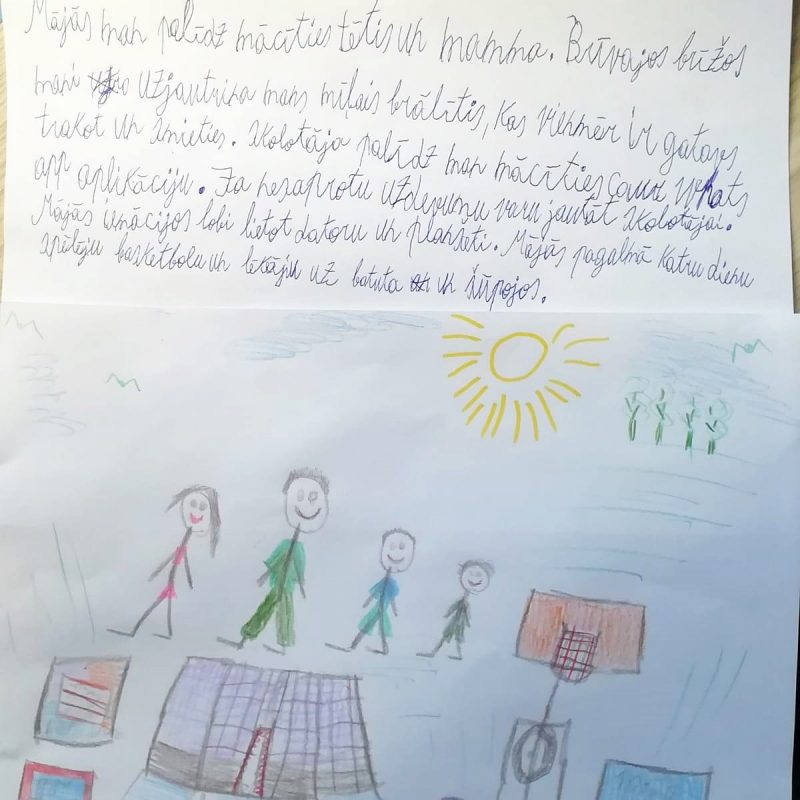 Mājās man palīdz mācīties tētis un mamma. Brīvajos brīžos
mani uzjautrina mans mīļais brālītis, kas vienmēr ir gatavs
trakot un smieties. Skolotāja palīdz man mācīties caur Whats
app aplikāciju. Ja nesaprotu uzdevumu varu jautāt skolotājai.
Mājās ienācijos lobi lietot datoru un planšeti. Mājās pagalmā katru dienu
spēlēju basketbolu un lēkāju uz batuta un šūpojos.